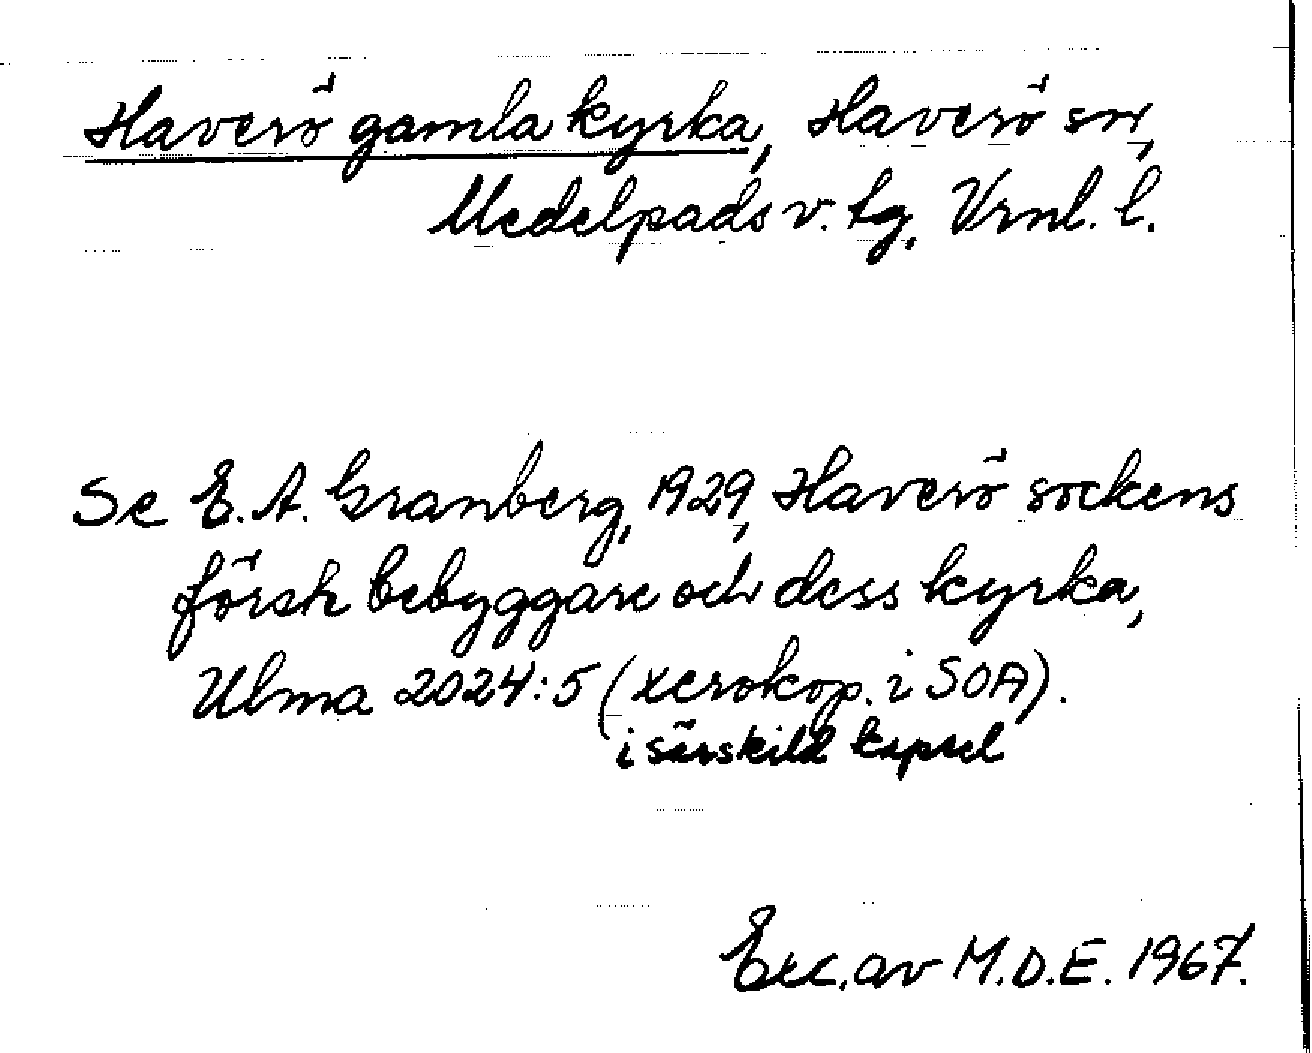 Haverö gamla kyrka, Haverö sn,
Medelpads v. tg. Vrnl. l.
Se E. A. Granberg, 1929, Haverö sockens
första bebyggare och dess kyrka,
Ulma 2024:5 (xerokop. i SOA).
i särskild kapsel
Exc. av M.D.E. 1967.